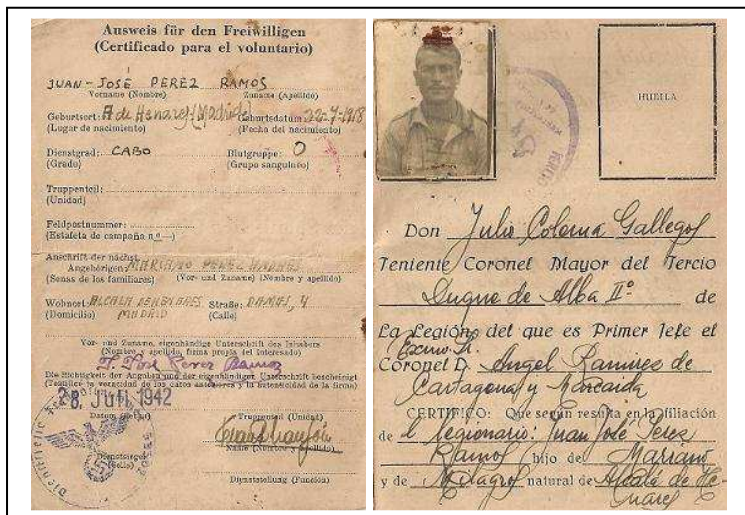 Ausweis für den Freiwilligen
(Certificado para el voluntario)
JUAN-JOSÉ PEREZ RAMOS
Vorname (Nombre) Zuname (Apellido)
Geburtsort: A de Henares (Madrid) Geburtsdatum: 22-7-1918
(Lugar de nacimiento) (Fecha del nacimiento)
Dienstgrad: CABO Blutgruppe: O
(Grado) (Grupo sanguíneo)
Truppenteil:
(Unidad)
Feldpostnummer:
(Estafeta de campaña n.º —)
Anschrift der nächst.
Angehörigen: MARIANO PEREZ
(Senas de los familiares) (Vor- und Zuname) (Nombre y apellido)
Wohnort: ALCALA HENARES Straße: DAMAS, 4
(Domicilio) MADRID (Calle)
Vor- und Zuname, eigenhändige Unterschrift des Inhabers
(Nombre y apellido, firma propia del interesado)
J. José Perez Ramos
Die Richtigkeit der Angaben und der eigenhändigen Unterschrift bescheinigt
(Testifica la veracidad de los datos anteriores y la autenticidad de la firma)
28. Juli 1942
Datum (Fecha) Truppenteil (Unidad)
Dienstsiegel Name (Nombre y apellido)
(Sello)
Dienststellung (Función)
HUELLA
Don Julio Coloma Gallegos
Teniente Coronel Mayor del Tercio
Duque de Alba IIº de
La Legión del que es Primer Jefe el
Excmo. Sr.
Coronel D. Angel Ramirez de
Cartagena y Marcaida
CERTIFICO: Que según resulta en la filiación
de l legionario: Juan José Perez
Ramos hijo de Mariano
y de Milagros natural de Alcalá de He-
nares